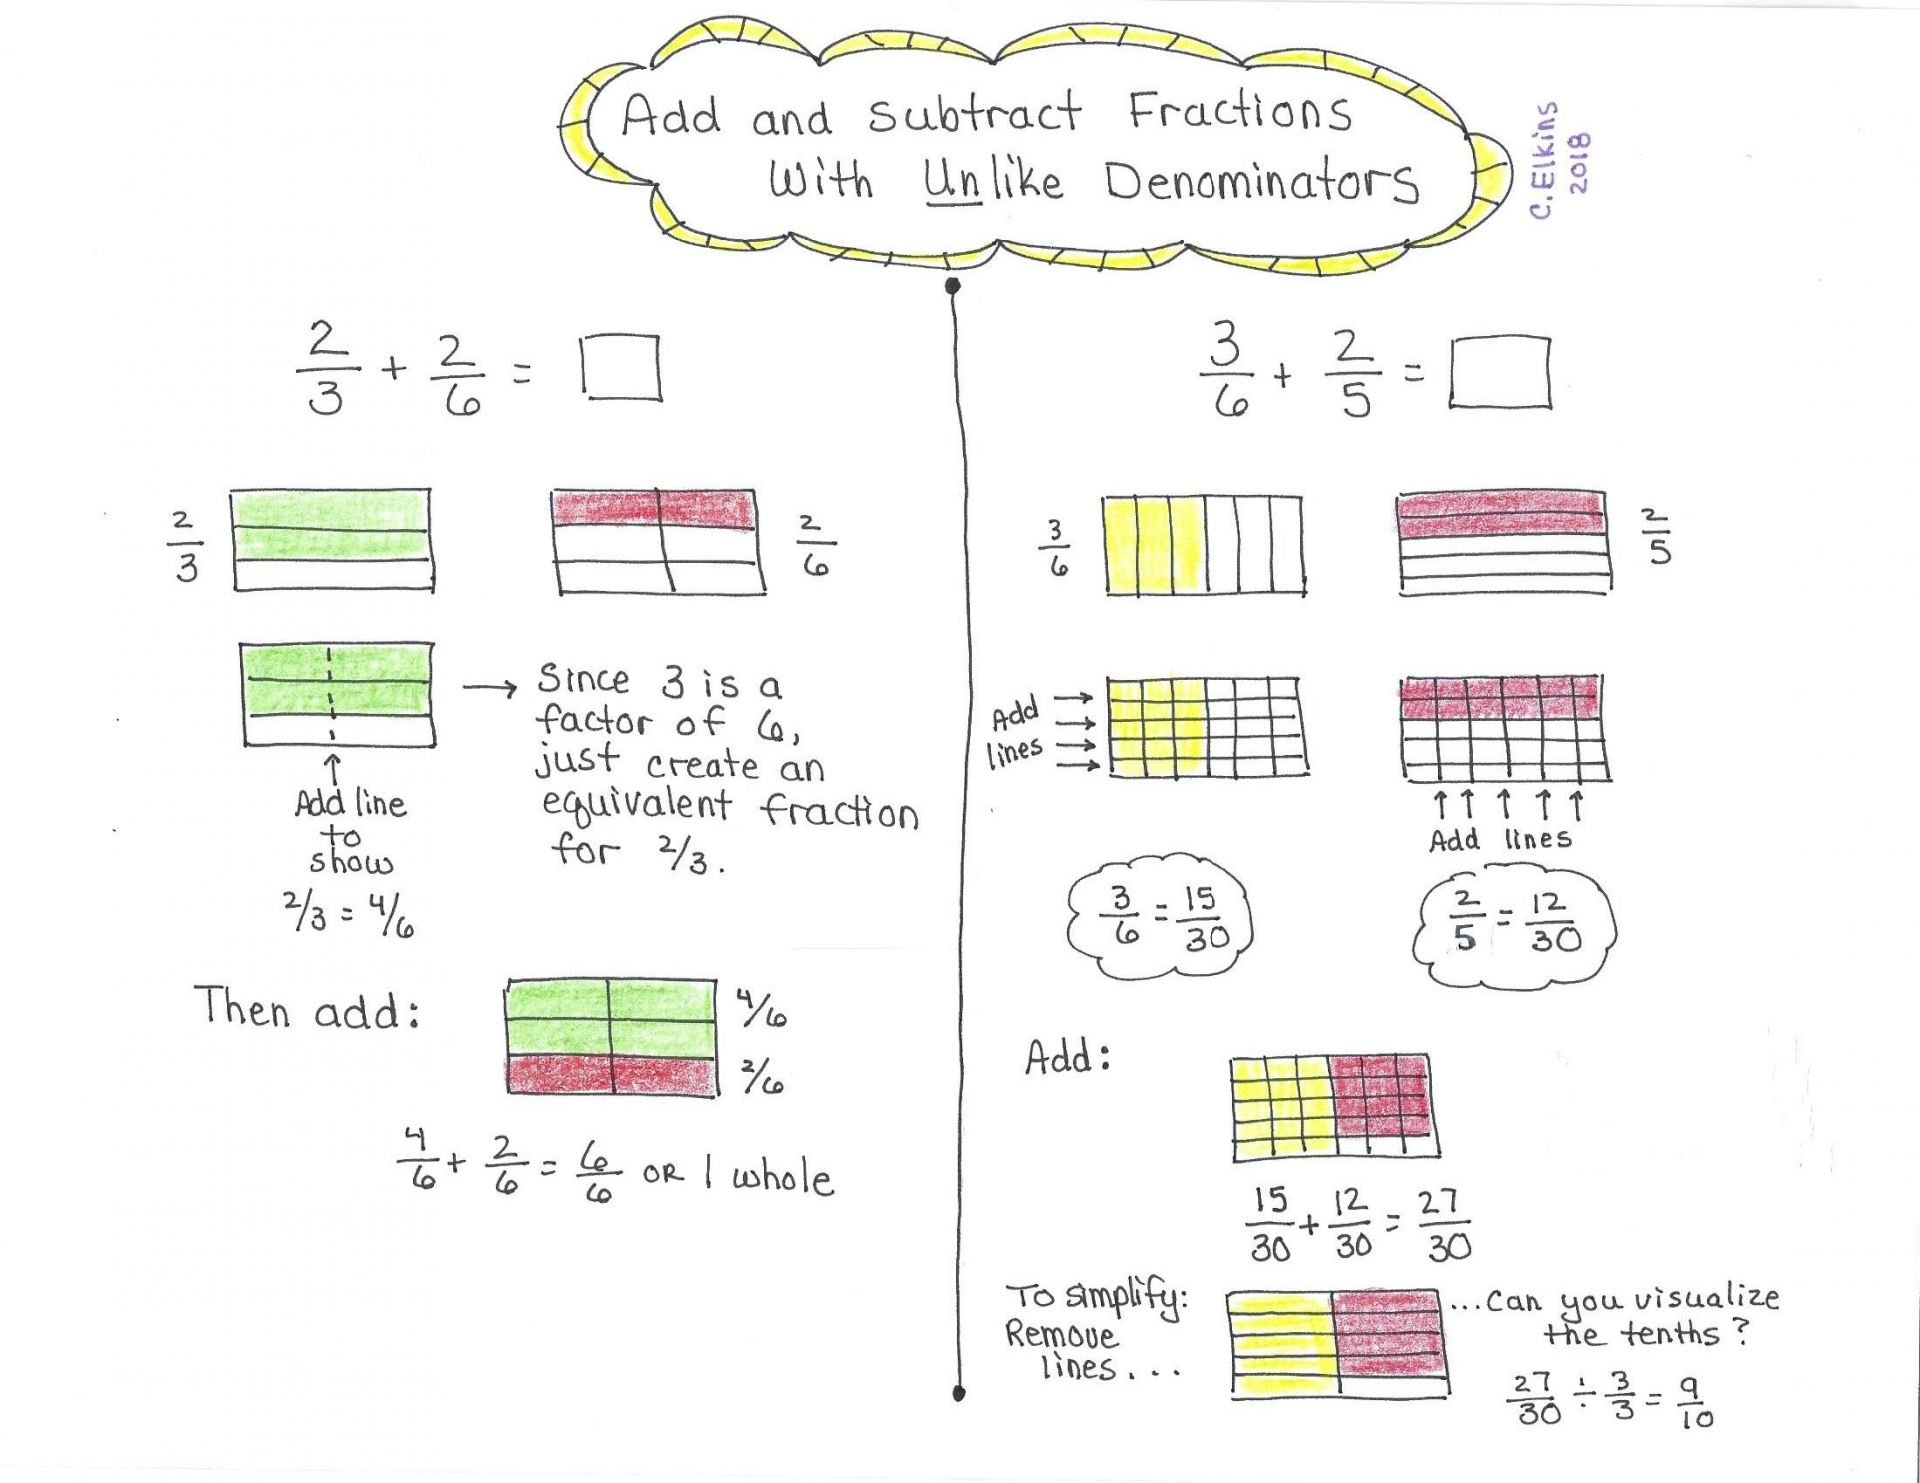 Add and Subtract Fractions
With Unlike Denominators
C. Elkins
2018
2/3 + 2/6 =
2/3
2/6
→ Since 3 is a
factor of 6,
just create an
equivalent fraction
for 2/3.
↑
Add line
to
show
2/3 = 4/6
Then add:
4/6
2/6
4/6 + 2/6 = 6/6 OR 1 whole
3/6 + 2/5 =
3/6
2/5
Add
lines
Add lines
3/6 = 15/30
2/5 = 12/30
Add:
15/30 + 12/30 = 27/30
To simplify:
Remove
lines...
...Can you visualize
the tenths?
27/30 ÷ 3/3 = 9/10